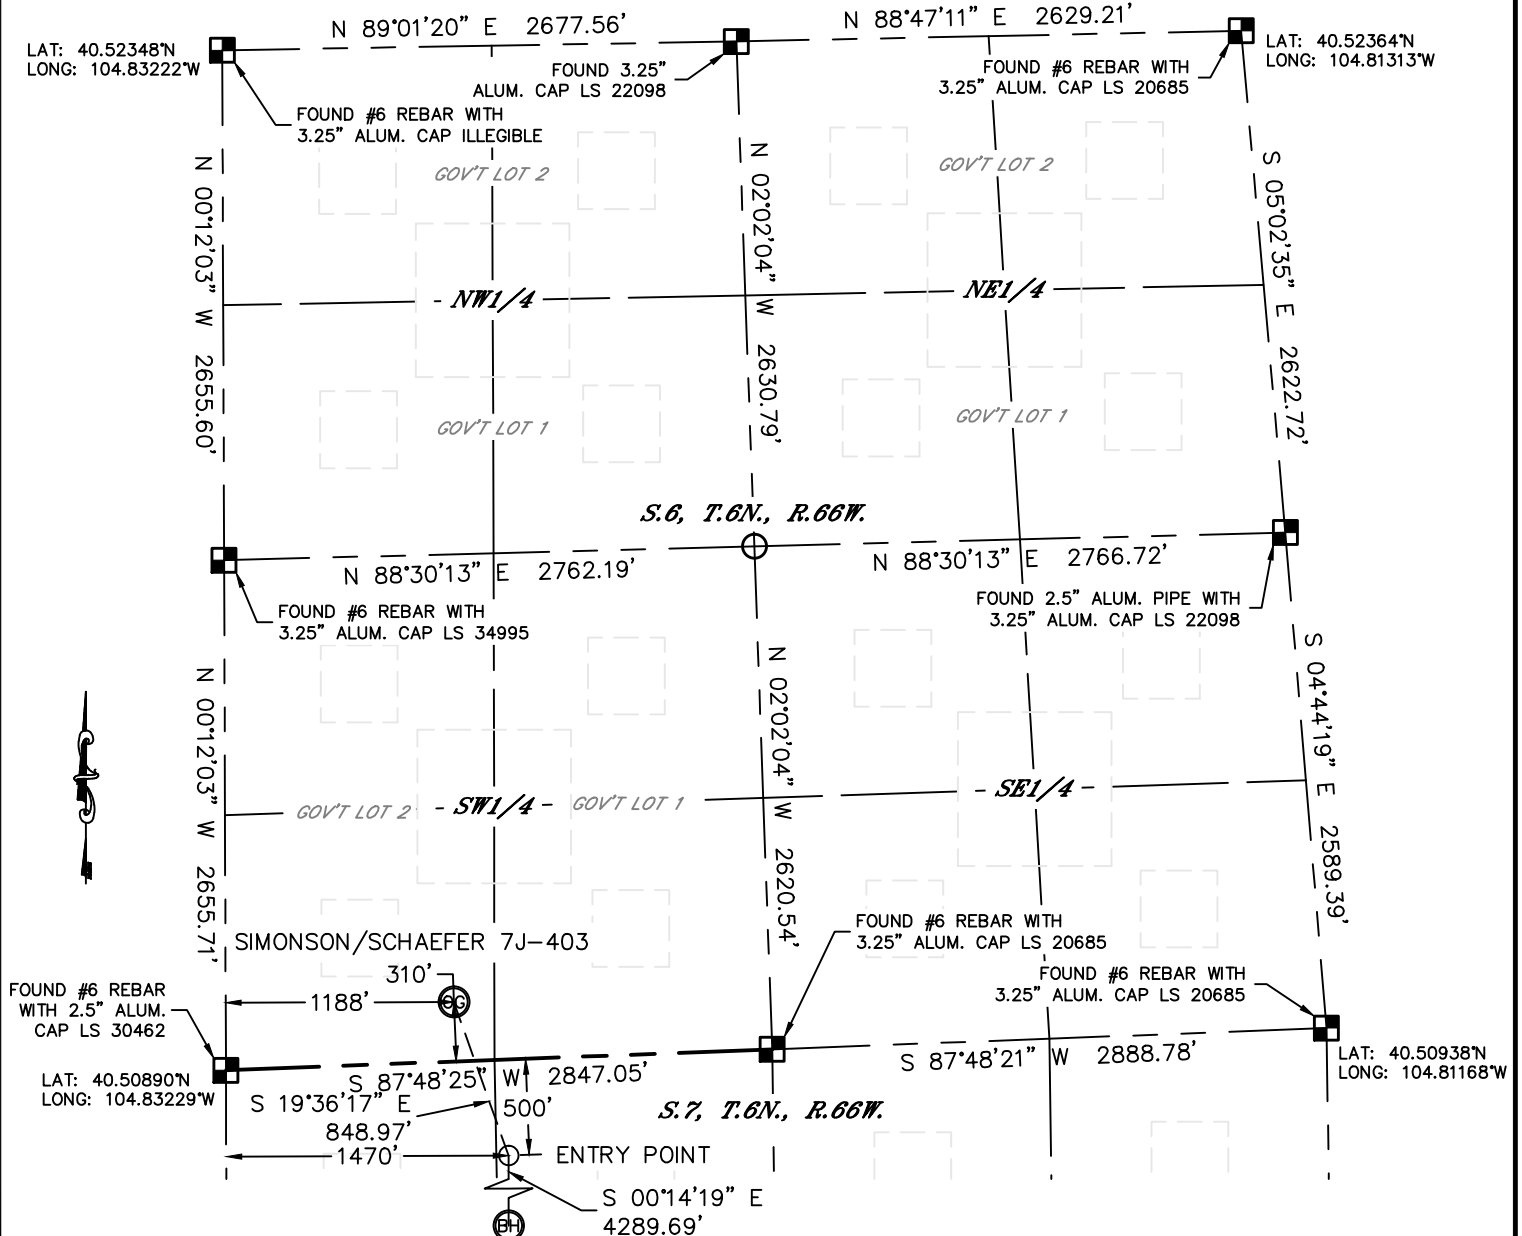 N 89°01'20" E 2677.56'
N 88°47'11" E 2629.21'
LAT: 40.52348°N
LONG: 104.83222°W
LAT: 40.52364°N
LONG: 104.81313°W
FOUND 3.25"
ALUM. CAP LS 22098
FOUND #6 REBAR WITH
3.25" ALUM. CAP LS 20685
FOUND #6 REBAR WITH
3.25" ALUM. CAP ILLEGIBLE
GOV'T LOT 2
GOV'T LOT 2
N 00°12'03" W 2655.60'
N 02°02'04" W 2630.79'
S 05°02'35" E 2622.72'
NW1/4
NE1/4
GOV'T LOT 1
GOV'T LOT 1
S.6, T.6N., R.66W.
N 88°30'13" E 2762.19'
N 88°30'13" E 2766.72'
FOUND #6 REBAR WITH
3.25" ALUM. CAP LS 34995
FOUND 2.5" ALUM. PIPE WITH
3.25" ALUM. CAP LS 22098
N 00°12'03" W 2655.71'
N 02°02'04" W 2620.54'
S 04°44'19" E 2589.39'
GOV'T LOT 2
SW1/4
GOV'T LOT 1
SE1/4
SIMONSON/SCHAEFER 7J-403
310'
1188'
OG
FOUND #6 REBAR WITH
3.25" ALUM. CAP LS 20685
FOUND #6 REBAR WITH
3.25" ALUM. CAP LS 20685
FOUND #6 REBAR
WITH 2.5" ALUM.
CAP LS 30462
LAT: 40.50890°N
LONG: 104.83229°W
S 87°48'25" W 2847.05'
S 87°48'21" W 2888.78'
LAT: 40.50938°N
LONG: 104.81168°W
S 19°36'17" E
848.97'
500'
S.7, T.6N., R.66W.
1470'
ENTRY POINT
S 00°14'19" E
4289.69'
BH